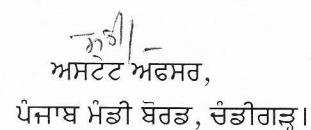 ਅਸਟੇਟ ਅਫਸਰ,
ਪੰਜਾਬ ਮੰਡੀ ਬੋਰਡ, ਚੰਡੀਗੜ੍ਹ।